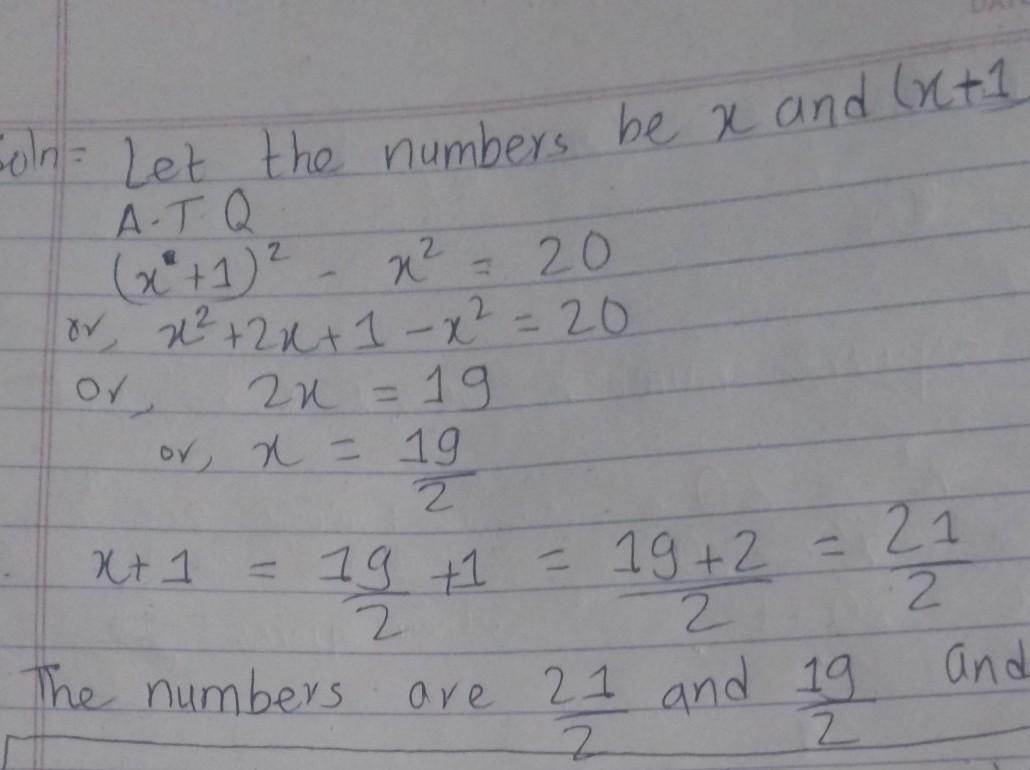 Soln= Let the numbers be x and (x+1
A.T.Q
(x+1)² - x² = 20
or, x²+2x+1-x² = 20
or, 2x = 19
or, x = 19/2
x+1 = 19/2 +1 = 19+2/2 = 21/2
The numbers are 21/2 and 19/2 and